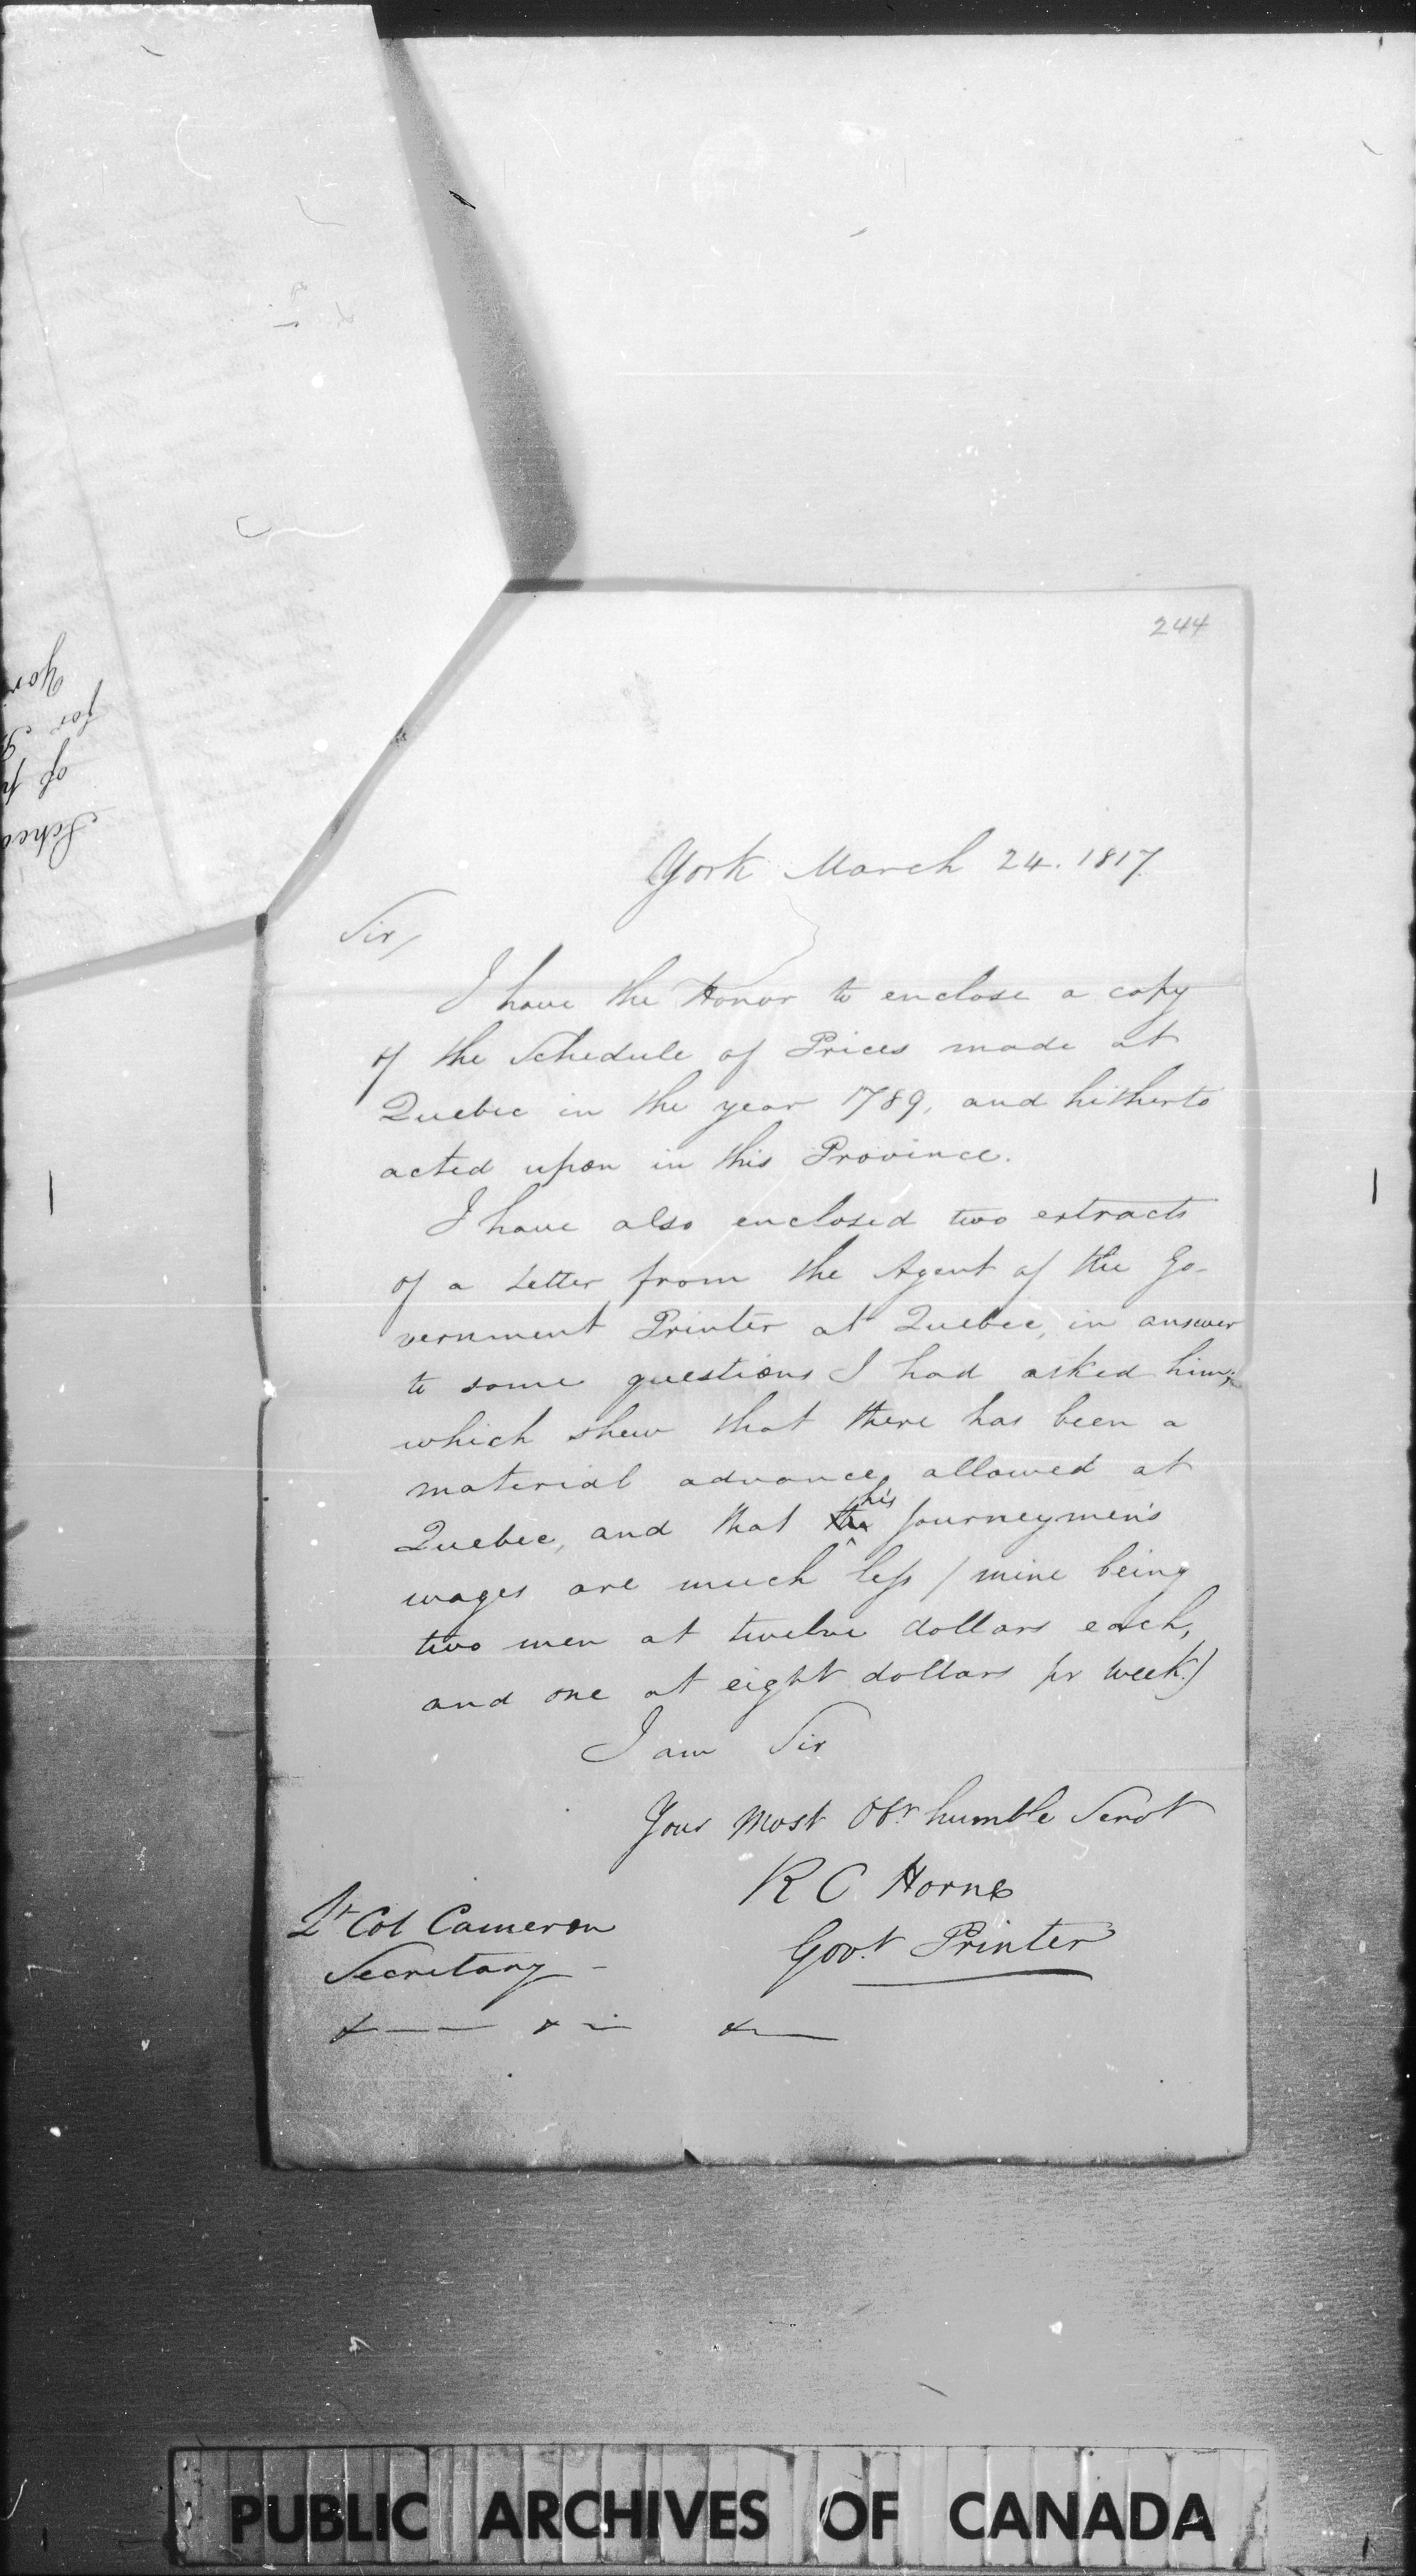 244
York March 24. 1817.
Sir/
I have the Honor to enclose a copy
of the Schedule of Prices made at
Quebec in the year 1789, and hitherto
acted upon in this Province.
I have also enclosed two extracts
of a Letter from the Agent of the Go-
vernment Printer at Quebec, in answer
to some questions I had asked him;
which shew that there has been a
material advance allowed at
Quebec, and that the his Journeymen's
wages are much less / mine being
two men at twelve dollars each,
and one at eight dollars pr week.)
I am Sir
Your most Obt humble Servt
R C Horne
Govt. Printer
Lt Col Cameron
Secretary
& — & — & —
Yor
for
of
Sche
PUBLIC ARCHIVES OF CANADA